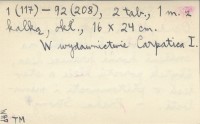 1 (117) – 92 (208), 2 tab., 1 m. z
kalką, okł., 16 x 24 cm.
W wydawnictwie Carpatica I.
TM